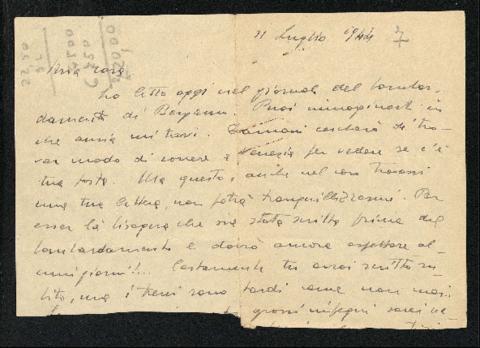 11 Luglio 1944
7
Mia cara,
ho letto oggi nel giornale del bombar-
damento di Bergamo. Puoi immaginarti in
che ansia mi trovi. Domani cercherò di tro-
var modo di correre a Venezia per vedere se c'è
tua posta. Ma questo, anche nel con trovassi
una tua lettera, non potrà tranquillizzarmi. Per
esser là bisogna che sia stata scritta prima del
bombardamento e dovrò ancora aspettare al-
cuni giorni!... Certamente tu avrai scritto su-
bito, ma i treni sono tardi come non mai
grossi